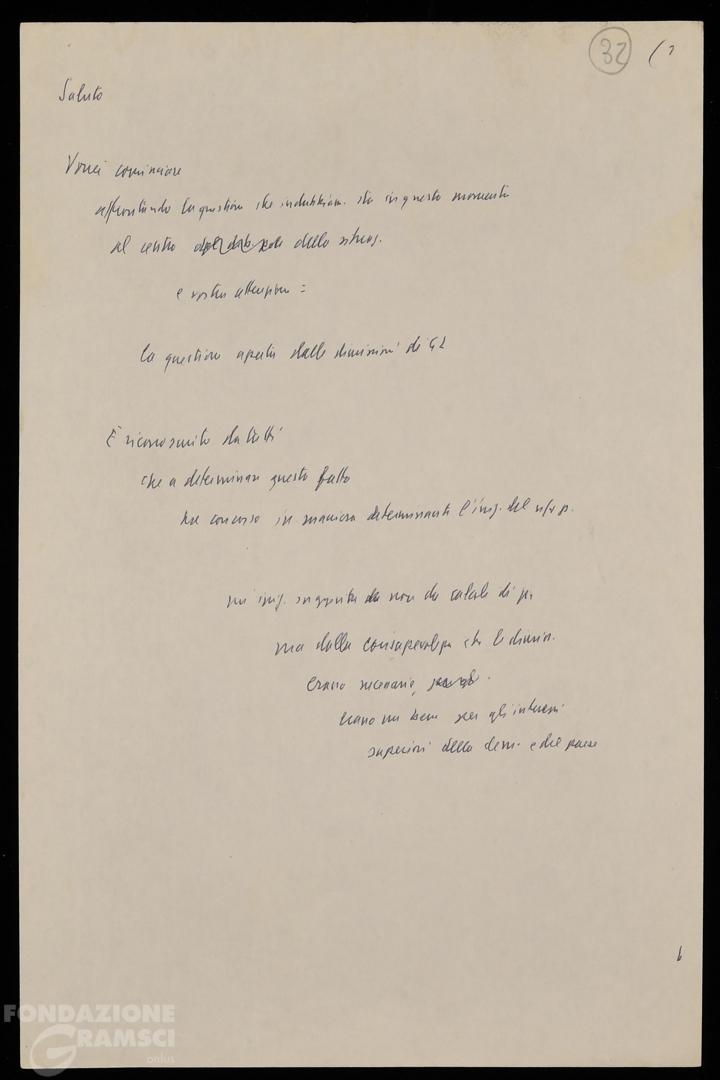 32 (?
Saluto
Vorrei cominciare
affrontando la questione che indubbiam. sta in questo momento
al centro della situaz.
e vostra attenzione =
la questione aperta dalle dimissioni di GL
È riconosciuto da tutti
che a determinare questo fatto
ha concorso in maniera determinante l'iniz. del n/ p.
un' iniz. suggerita da non da calcoli di p.
ma dalla consapevolezza che le dimis.
erano necessarie,
erano un bene per gli interessi
superiori della dem. e del paese
6
FONDAZIONE
GRAMSCI
onlus